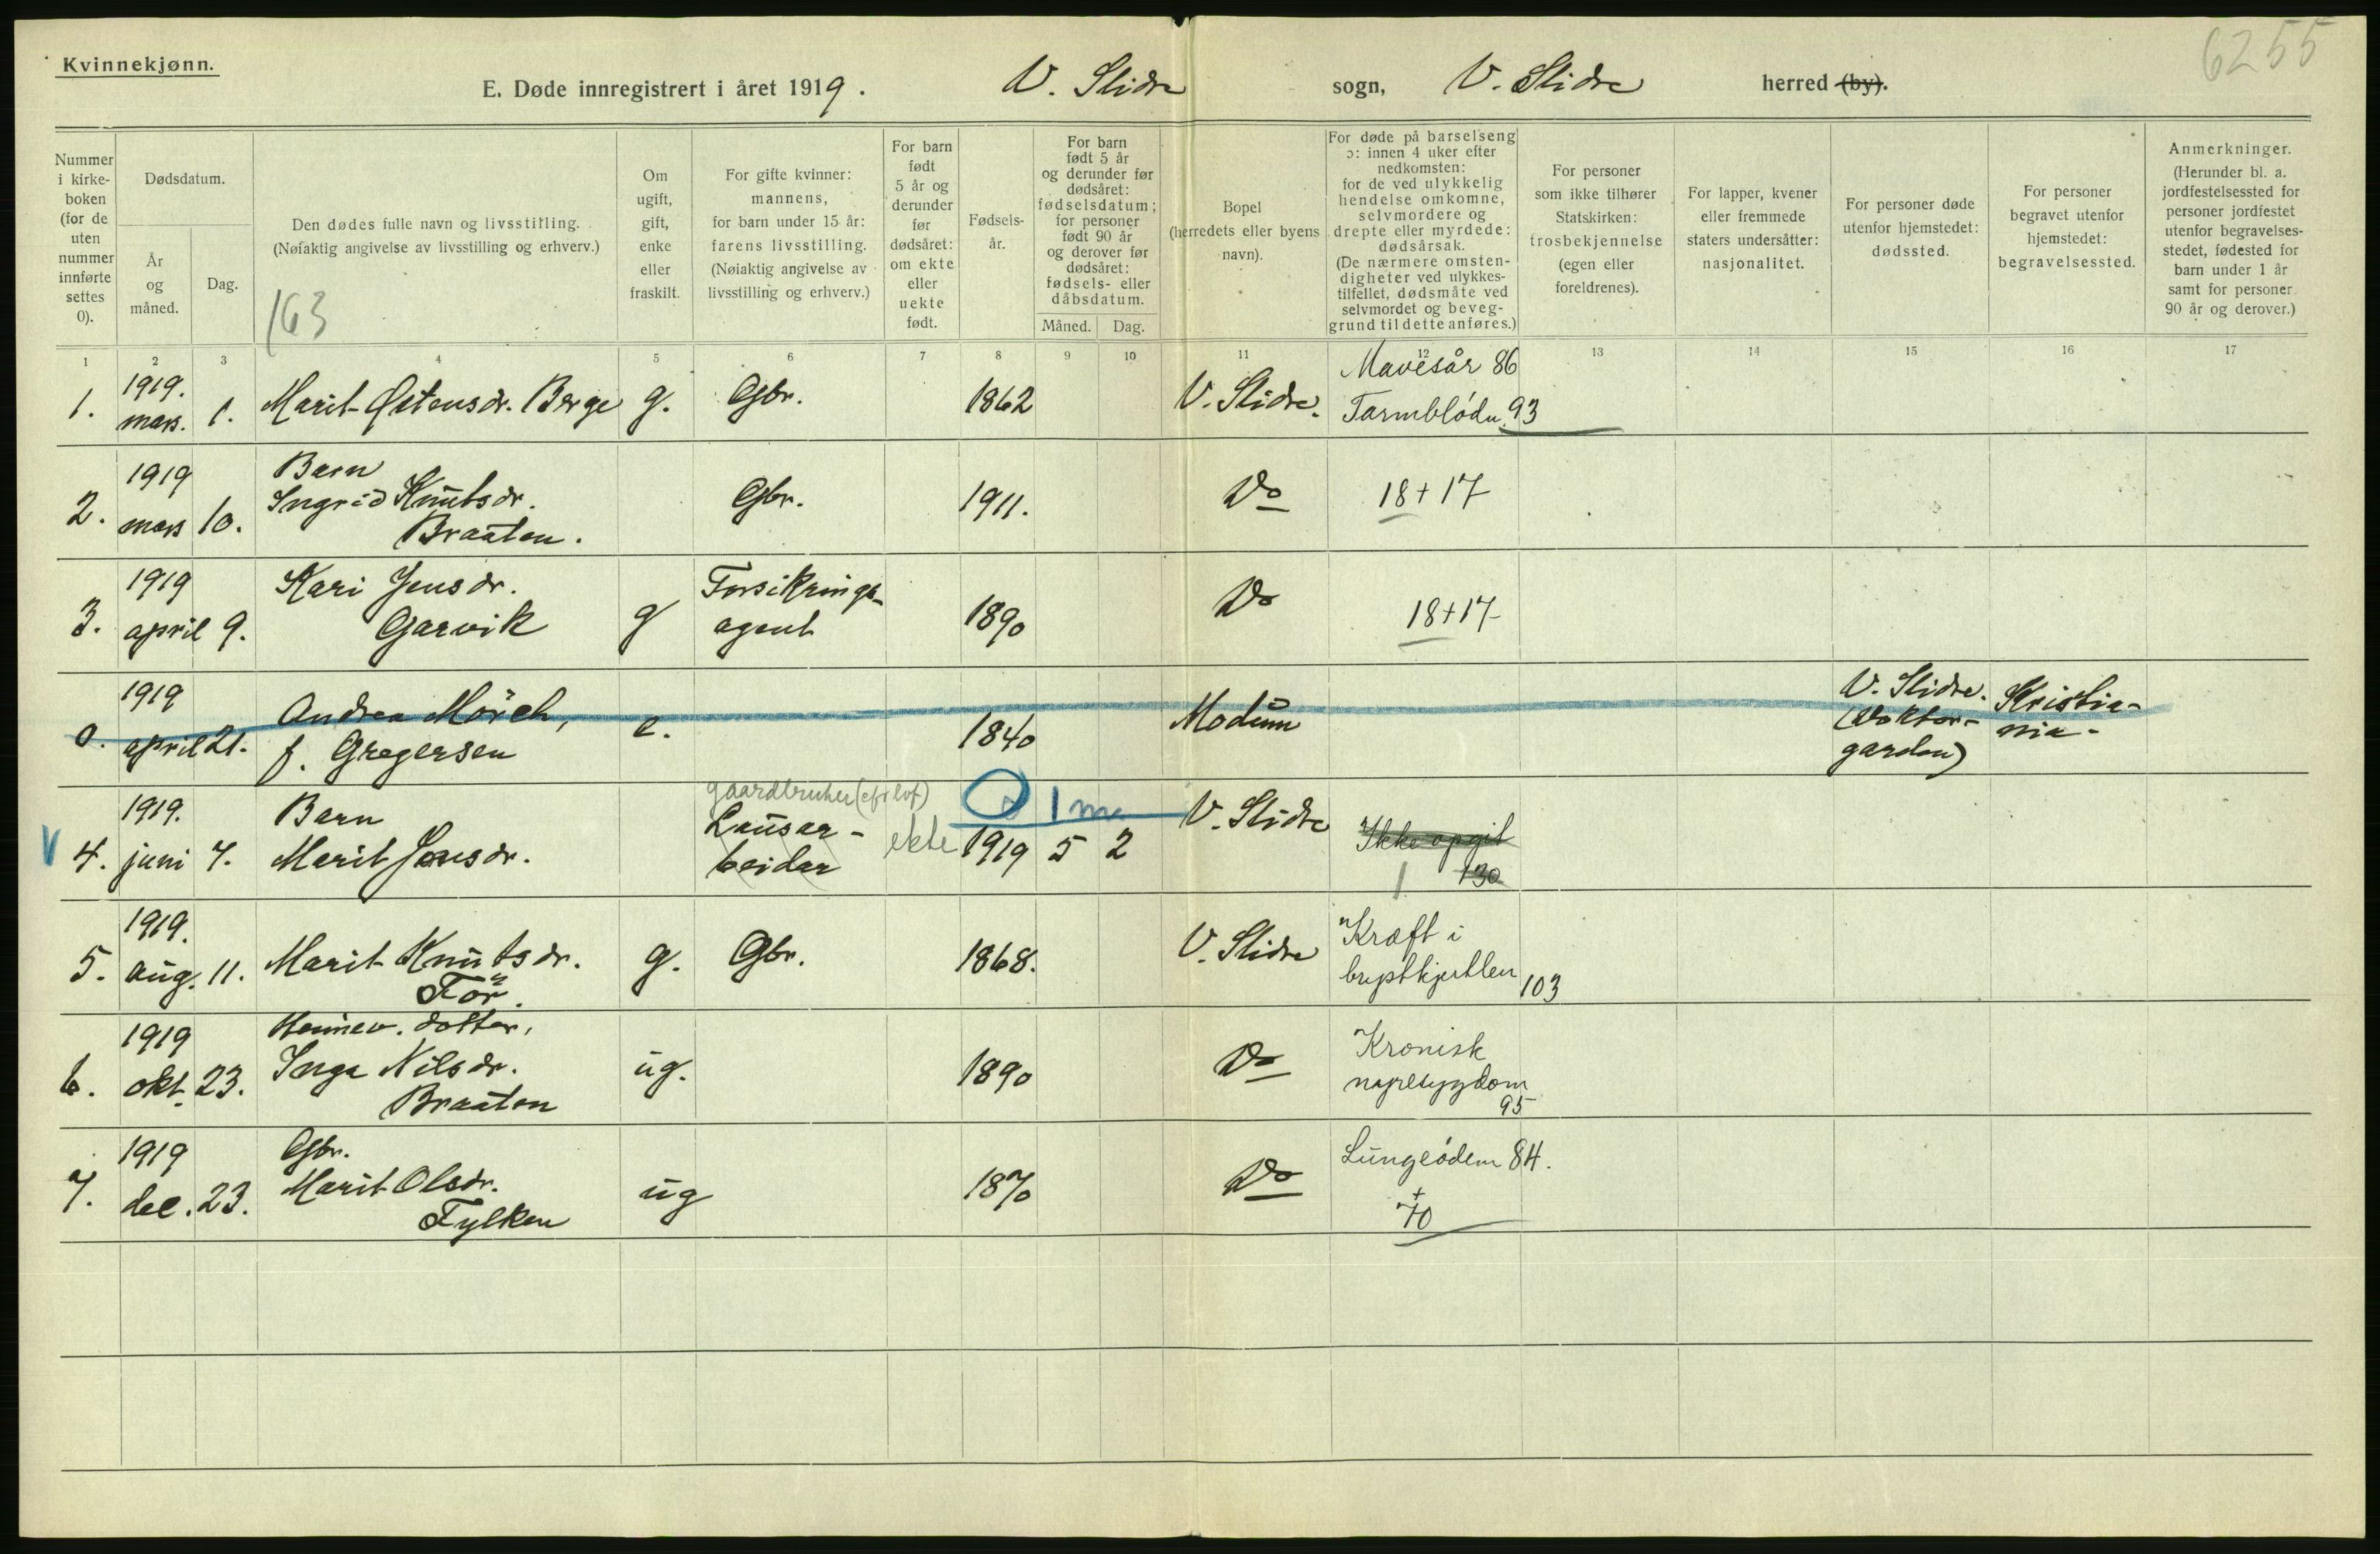 Kvinnekjønn.
6255
E. Døde innregistrert i året 1919. V. Slidre sogn, V. Slidre herred (by).
Nummer i kirke-boken (for de uten nummer innførte settes 0).
Dødsdatum.
År og måned.
Dag.
Den dødes fulle navn og livsstilling.
(Nøiaktig angivelse av livsstilling og erhverv.)
163
Om ugift, gift, enke eller fraskilt.
For gifte kvinner: mannens, for barn under 15 år: farens livsstilling. (Nøiaktig angivelse av livsstilling og erhverv.)
For barn født 5 år og derunder før dødsåret: om ekte eller uekte født.
Fødsels-år.
For barn født 5 år og derunder før dødsåret: fødselsdatum; for personer født 90 år og derover før dødsåret: fødsels- eller dåbsdatum.
Måned. Dag.
Bopel (herredets eller byens navn).
For døde på barselseng ɔ: innen 4 uker efter nedkomsten: for de ved ulykkelig hendelse omkomne, selvmordere og drepte eller myrdede: dødsårsak. (De nærmere omsten-digheter ved ulykkes-tilfellet, dødsmåte ved selvmordet og beveg-grund til dette anføres.)
For personer som ikke tilhører Statskirken: trosbekjennelse (egen eller foreldrenes).
For lapper, kvener eller fremmede staters undersåtter: nasjonalitet.
For personer døde utenfor hjemstedet: dødssted.
For personer begravet utenfor hjemstedet: begravelsessted.
Anmerkninger. (Herunder bl. a. jordfestelsessted for personer jordfestet utenfor begravelses-stedet, fødested for barn under 1 år samt for personer 90 år og derover.)
1 2 3 4 5 6 7 8 9 10 11 12 13 14 15 16 17
1. 1919. mars. 1. Marit Østensdr. Berge g. Gbr. 1862 V. Slidre. Mavesår 86
Tarmblödn. 93
2. 1919 mars 10. Barn
Ingrid Knutsdr.
Braaten. Gbr. 1911. Do 18+17
3. 1919 april 9. Kari Jensdr.
Garvik g Forsikrings-
agent 1890 Do 18+17
0. 1919 april 21. Andrea Mörch,
f. Gregersen e. 1840 Modum V. Slidre.
(Doktor-
garden) Kristia-
nia.
V 4. 1919. juni 7. Barn
Marit Jonsdr. gaardbruker
Lausar-
beidar ekte 1 1919 5 2 V. Slidre Ikke opgit
1 130
5. 1919. aug. 11. Marit Knutsdr.
För. g. Gbr. 1868. V. Slidre Kræft i
brystkjertlen 103
6. 1919 okt. 23. dotter,
Inga Nilsdr.
Braaten ug. 1890 Do Kronisk
nyresygdom
95
7. 1919 dec. 23. Gbr.
Marit Olsdr.
Fylken ug 1870 Do Lungeödem 84.
+
70